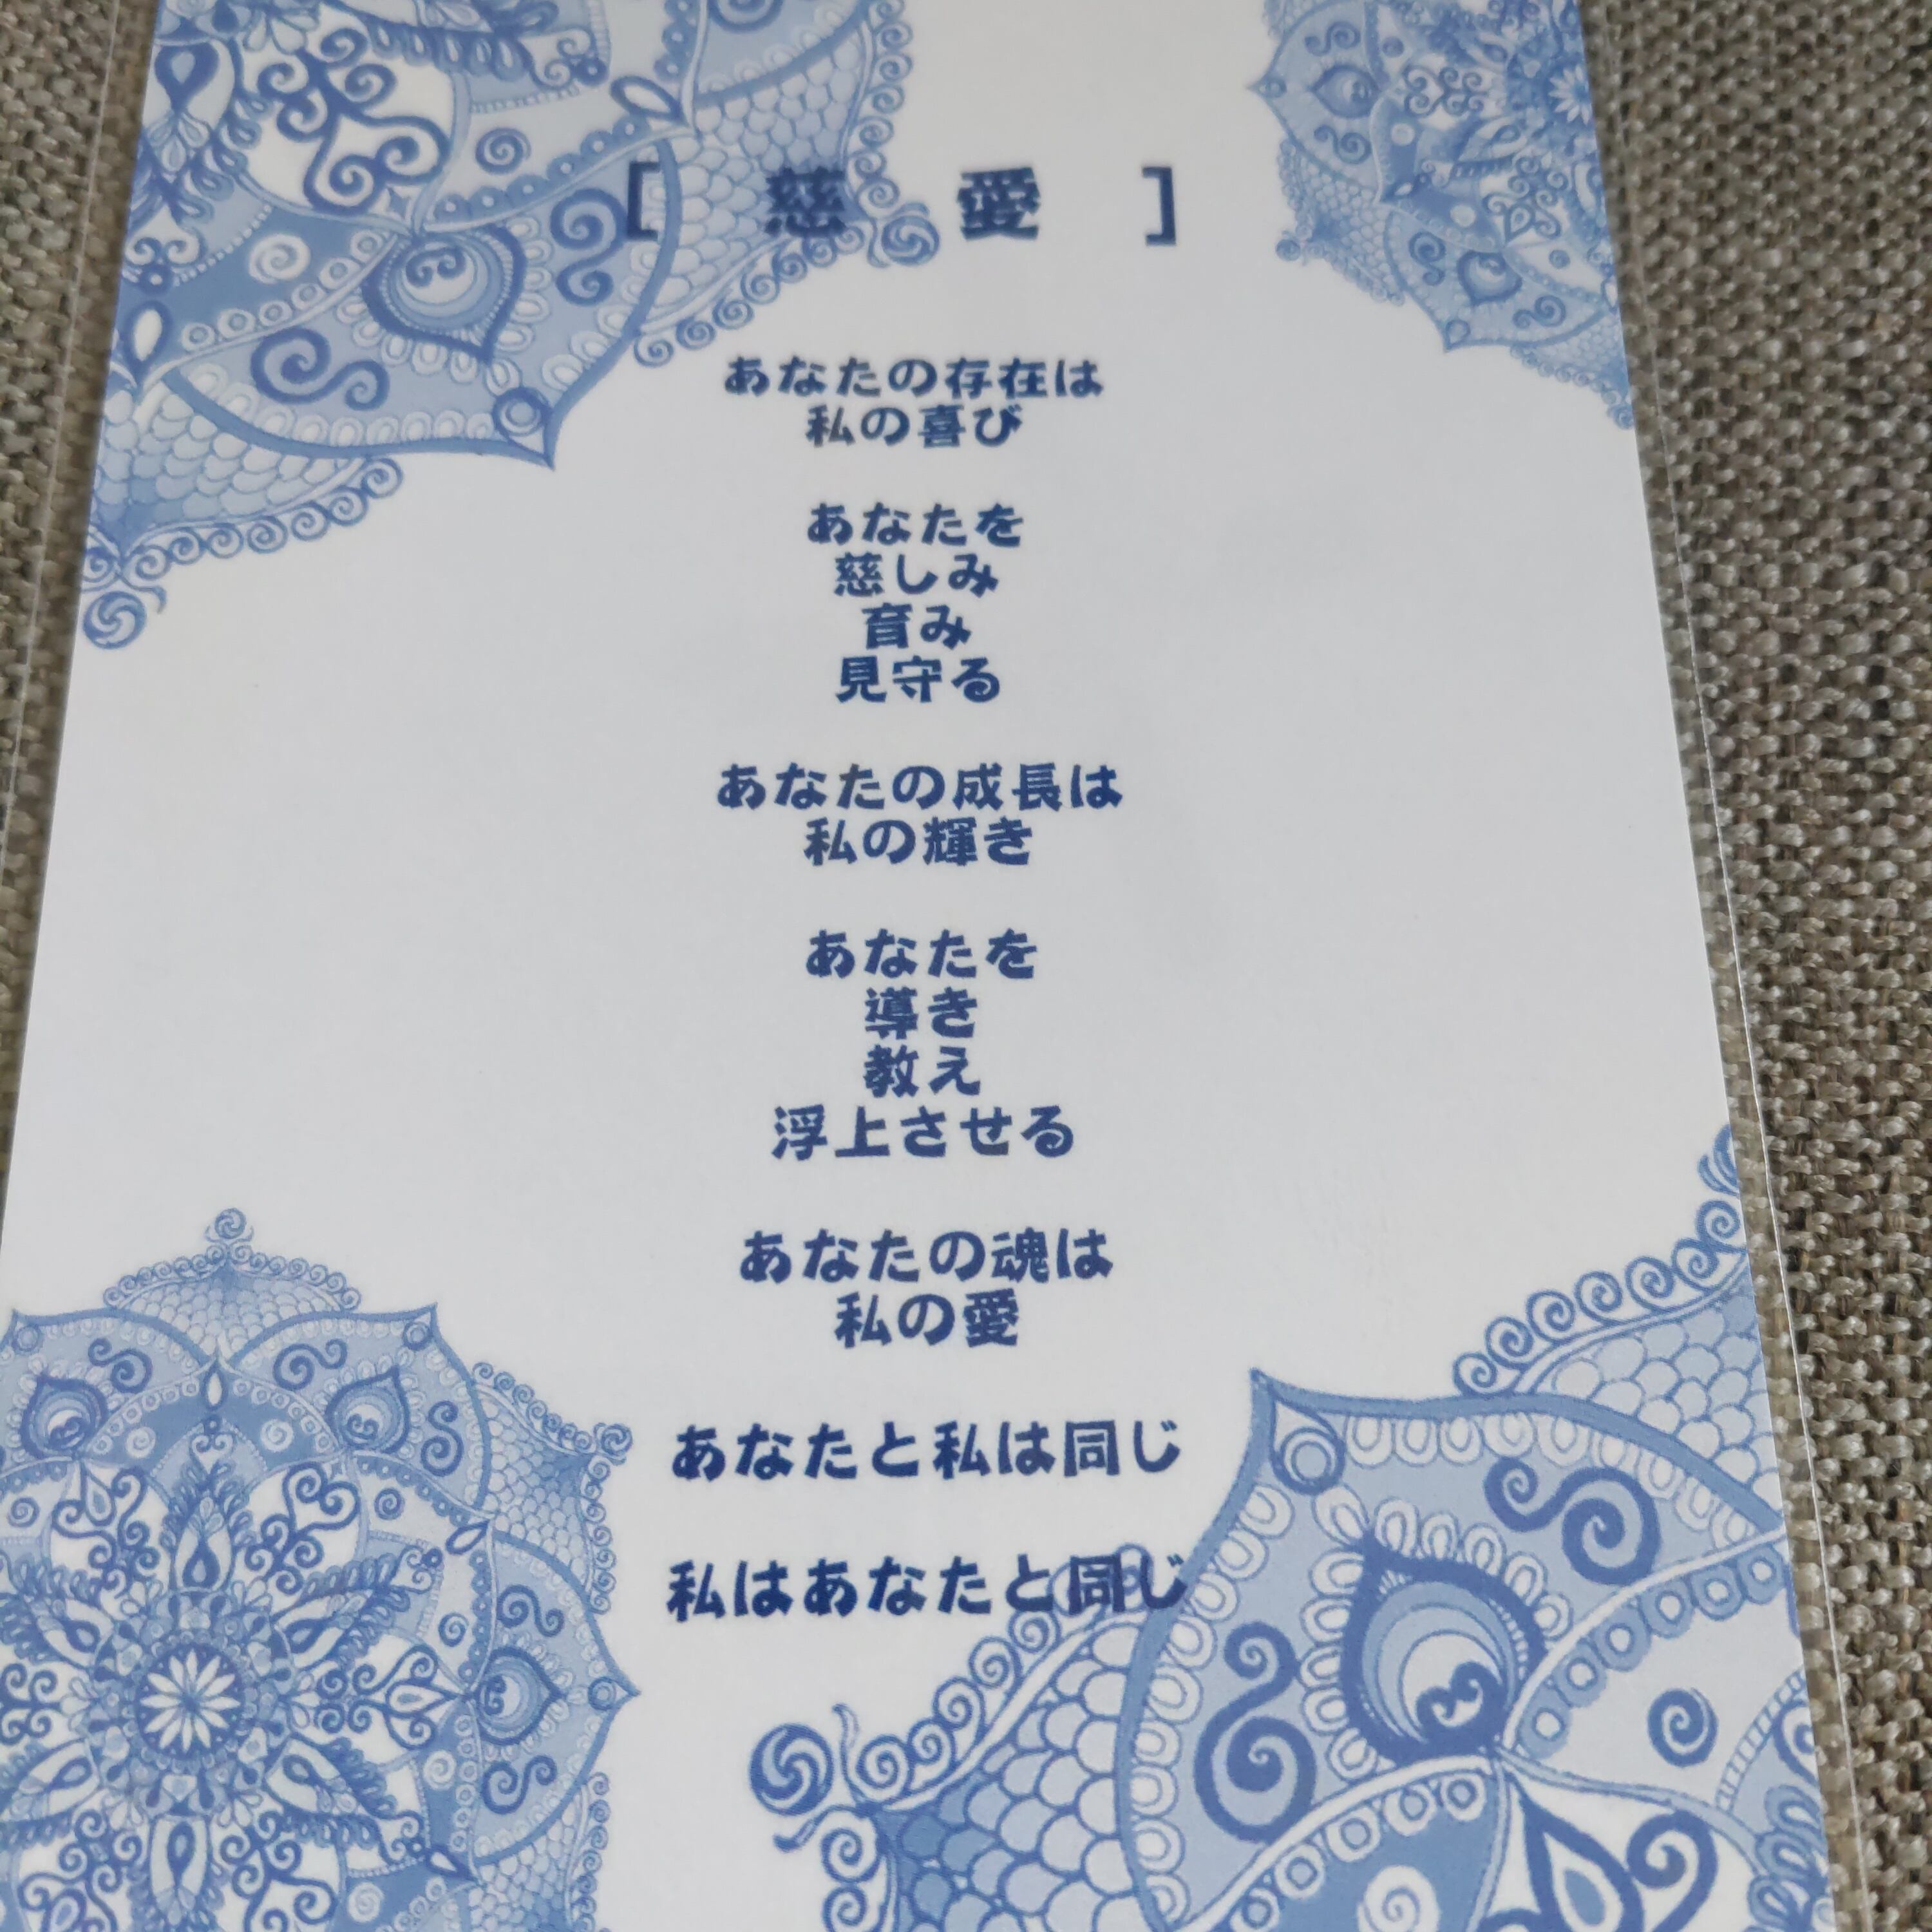 [ 慈 愛 ]
あなたの存在は
私の喜び
あなたを
慈しみ
育み
見守る
あなたの成長は
私の輝き
あなたを
導き
教え
浮上させる
あなたの魂は
私の愛
あなたと私は同じ
私はあなたと同じ